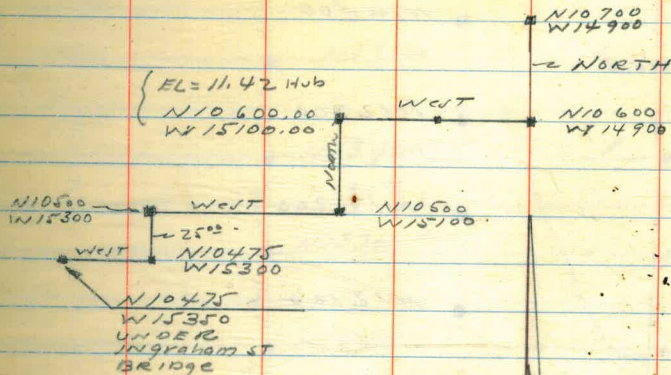 N10 700
W14 900
NORTH
EL = 11.42 Hub
N10 600.00
W 15100.00
West
N10 600
W 14900
North
N10500
W15300
West
N10500
W15100
25.00
West
N10475
W15300
N10475
W15350
UNDER
INgraham ST
BRIDge